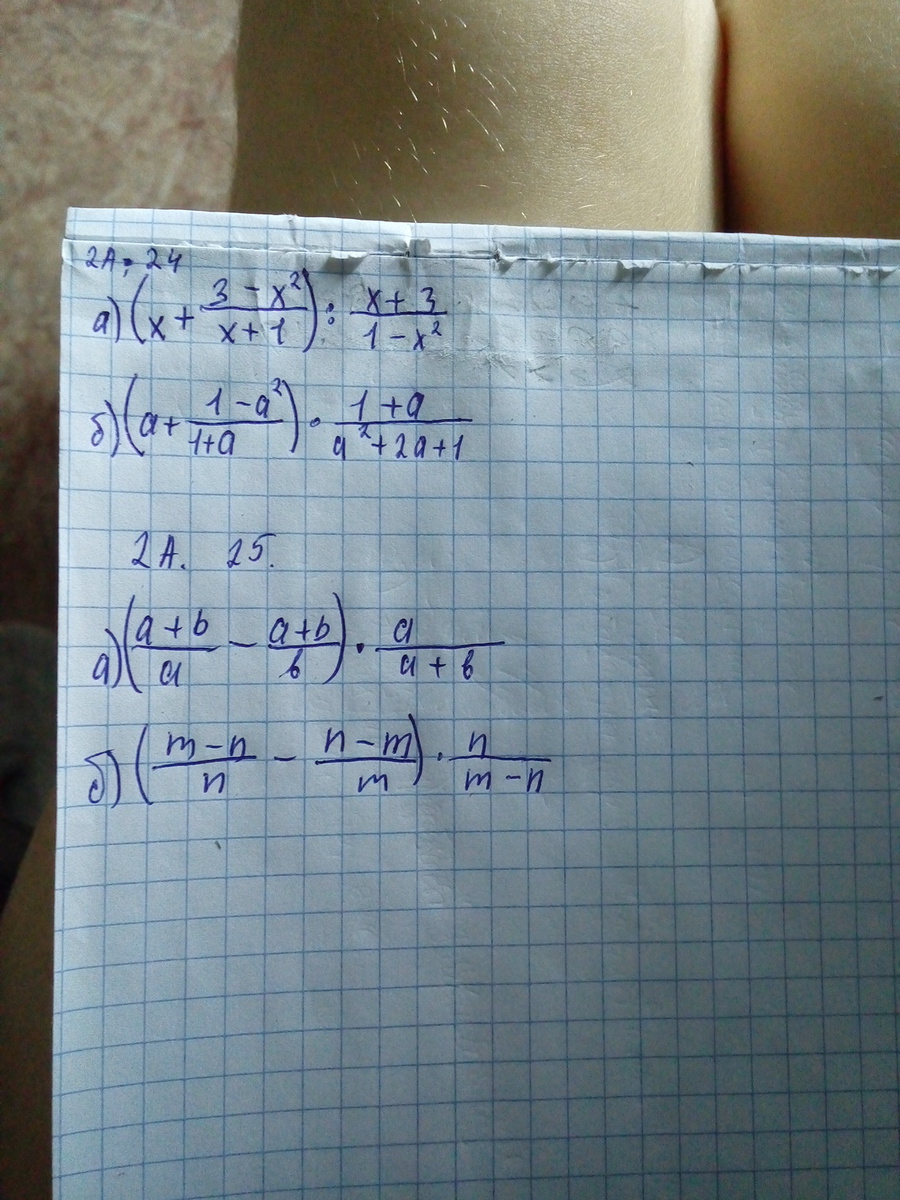 2А. 24
а) (x + (3 - x²)/(x + 1)) : (x + 3)/(1 - x²)
б) (a + (1 - a²)/(1 + a)) · (1 + a)/(a² + 2a + 1)
2А. 25.
а) ((a + b)/a - (a + b)/b) · a/(a + b)
б) ((m - n)/n - (n - m)/m) · n/(m - n)